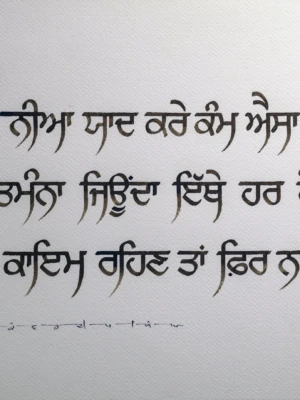 ਨੀਆ ਯਾਦ ਕਰੇ ਕੰਮ ਐਸਾ
ਤਮੰਨਾ ਜਿਊਂਦਾ ਇੱਥੇ ਹਰ
ਕਾਇਮ ਰਹਿਣ ਤਾਂ ਫ਼ਿਰ ਨ